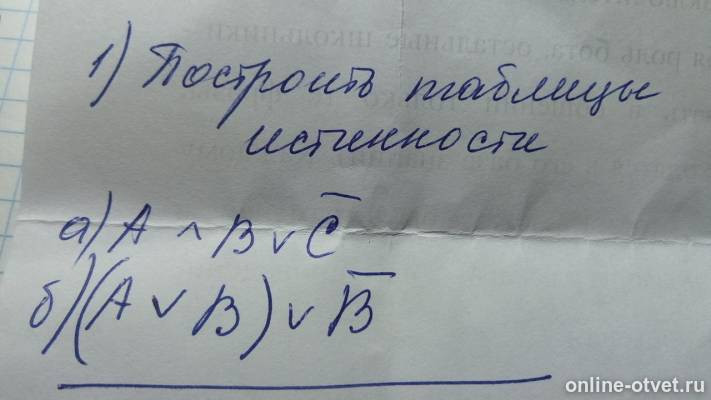 1) Построить таблицы
истинности
а) A ∧ B ∨ C̅
б) (A ∨ B) ∨ B̅
online-otvet.ru